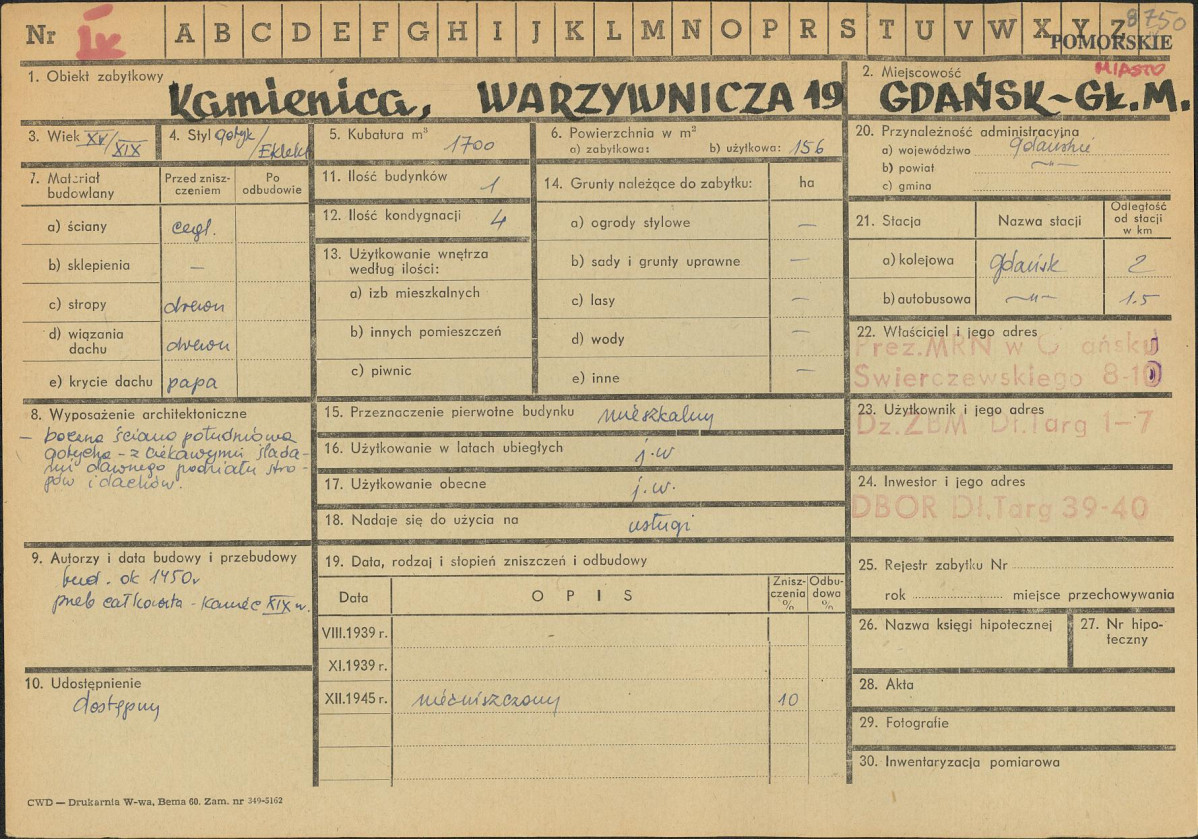 Nr Ik A B C D E F G H I J K L M N O P R S T U V W X Y Z 8750
POMORSKIE
MIASTO
1. Obiekt zabytkowy
Kamienica, WARZYWNICZA 19
2. Miejscowość
GDAŃSK-GŁ.M.
3. Wiek XV/XIX
4. Styl gotyk/Eklekt
5. Kubatura m³ 1700
6. Powierzchnia w m²
a) zabytkowa: b) użytkowa: 156
7. Materiał budowlany
Przed znisz-
czeniem
Po
odbudowie
a) ściany cegl.
b) sklepienia —
c) stropy drewn
d) wiązania
dachu drewn
e) krycie dachu papa
8. Wyposażenie architektoniczne
— boczna ściana południowa
gotycka - z ciekawymi ślada-
mi dawnego podziału stro-
pów i dachów.
9. Autorzy i data budowy i przebudowy
bud. ok 1450r
przeb całkowita - koniec XIX w.
10. Udostępnienie
dostępny
11. Ilość budynków 1
12. Ilość kondygnacji 4
13. Użytkowanie wnętrza
według ilości:
a) izb mieszkalnych
b) innych pomieszczeń
c) piwnic
14. Grunty należące do zabytku: ha
a) ogrody stylowe —
b) sady i grunty uprawne —
c) lasy —
d) wody —
e) inne —
15. Przeznaczenie pierwotne budynku mieszkalny
16. Użytkowanie w latach ubiegłych j.w
17. Użytkowanie obecne j.w.
18. Nadaje się do użycia na usługi
19. Data, rodzaj i stopień zniszczeń i odbudowy
Data OPIS Znisz-
czenia
%
Odbu-
dowa
%
VIII.1939 r. -
XI.1939 r.
XII.1945 r. niezniszczony 10
20. Przynależność administracyjna
a) województwo gdańskie
b) powiat —"—
c) gmina
21. Stacja Nazwa stacji Odległość
od stacji
w km
a) kolejowa Gdańsk 2
b) autobusowa —"— 1.5
22. Właściciel i jego adres
Prez.MRN w G ańsku
Swierczewskiego 8-10
23. Użytkownik i jego adres
Dz.ZBM Dł.Targ 1-7
24. Inwestor i jego adres
DBOR Dł.Targ 39-40
25. Rejestr zabytku Nr
rok miejsce przechowywania
26. Nazwa księgi hipotecznej
27. Nr hipo-
teczny
28. Akta
29. Fotografie
30. Inwentaryzacja pomiarowa
CWD — Drukarnia W-wa, Bema 60. Zam. nr 349-5162